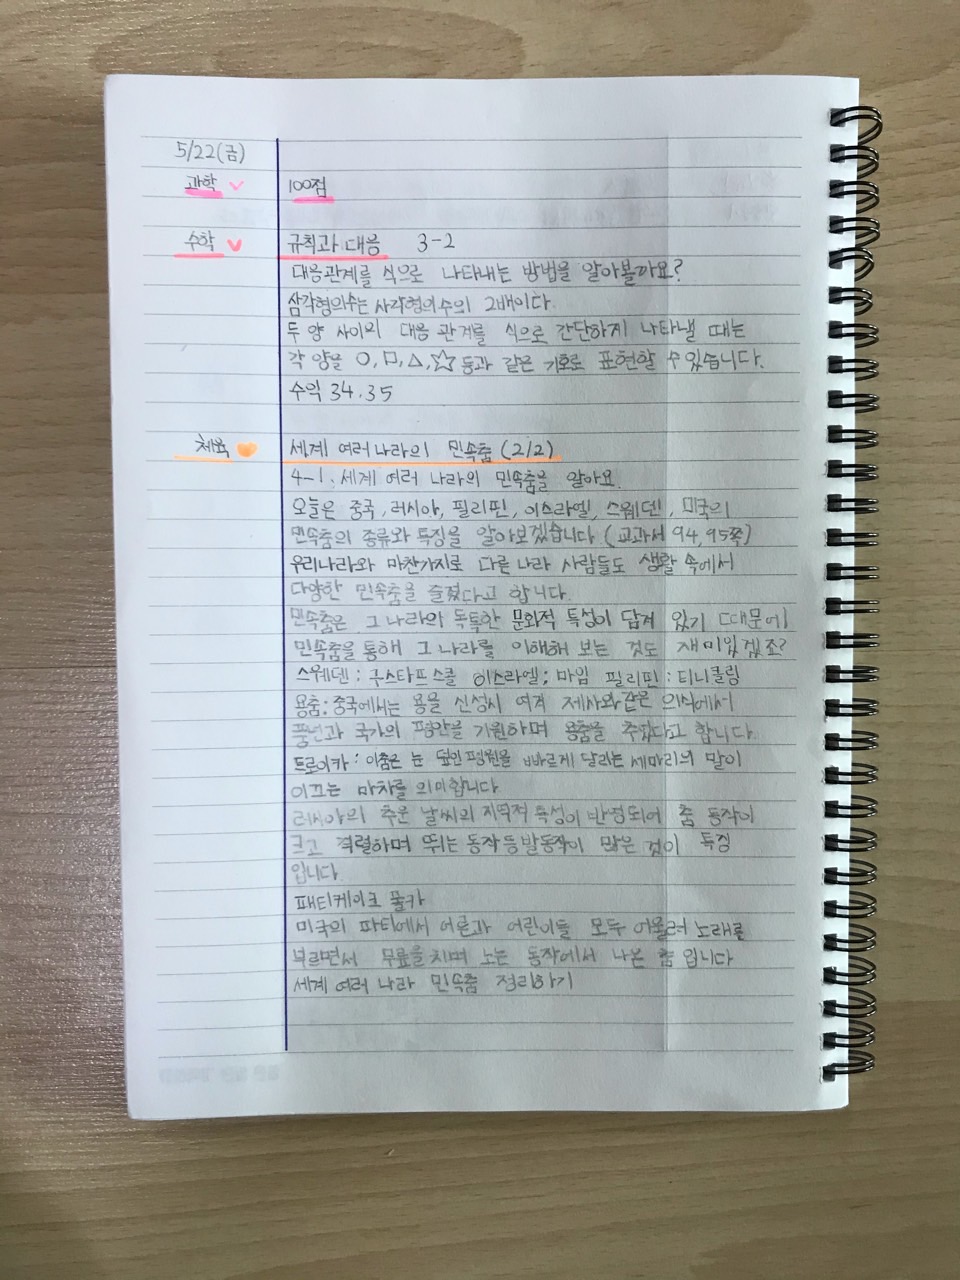 5/22(금)
과학 100점
수학 규칙과 대응 3-2
대응관계를 식으로 나타내는 방법을 알아볼까요?
삼각형의수는 사각형의수의 2배이다.
두 양 사이의 대응 관계를 식으로 간단하게 나타낼 때는
각 양을 ○, □, △, ☆ 등과 같은 기호로 표현할 수 있습니다.
수익 34.35
체육 세계 여러 나라의 민속춤 (2/2)
4-1. 세계 여러 나라의 민속춤을 알아요.
오늘은 중국, 러시아, 필리핀, 이스라엘, 스웨덴, 미국의
민속춤의 종류와 특징을 알아보겠습니다 (교과서 94, 95쪽)
우리나라와 마찬가지로 다른 나라 사람들도 생활 속에서
다양한 민속춤을 즐겼다고 합니다.
민속춤은 그 나라의 독특한 문화적 특성이 담겨 있기 때문에
민속춤을 통해 그 나라를 이해해 보는 것도 재미있겠죠?
스웨덴 : 구스타프스콜 이스라엘; 마임 필리핀 : 티니클링
용춤: 중국에서는 용을 신성시 여겨 제사와 같은 의식에서
풍년과 국가의 평안을 기원하며 용춤을 추었다고 합니다.
트로이카 : 이춤은 눈 덮인 평원을 빠르게 달리는 세마리의 말이
이끄는 마차를 의미합니다
러시아의 추운 날씨의 지역적 특성이 반영되어 춤 동작이
크고 격렬하며 뛰는 동작 등 발동작이 많은 것이 특징
입니다
패티케이크 폴카
미국의 파티에서 어른과 어린이들 모두 어울려 노래를
부르면서 무릎을 치며 노는 동작에서 나온 춤 입니다
세계 여러 나라 민속춤 정리하기